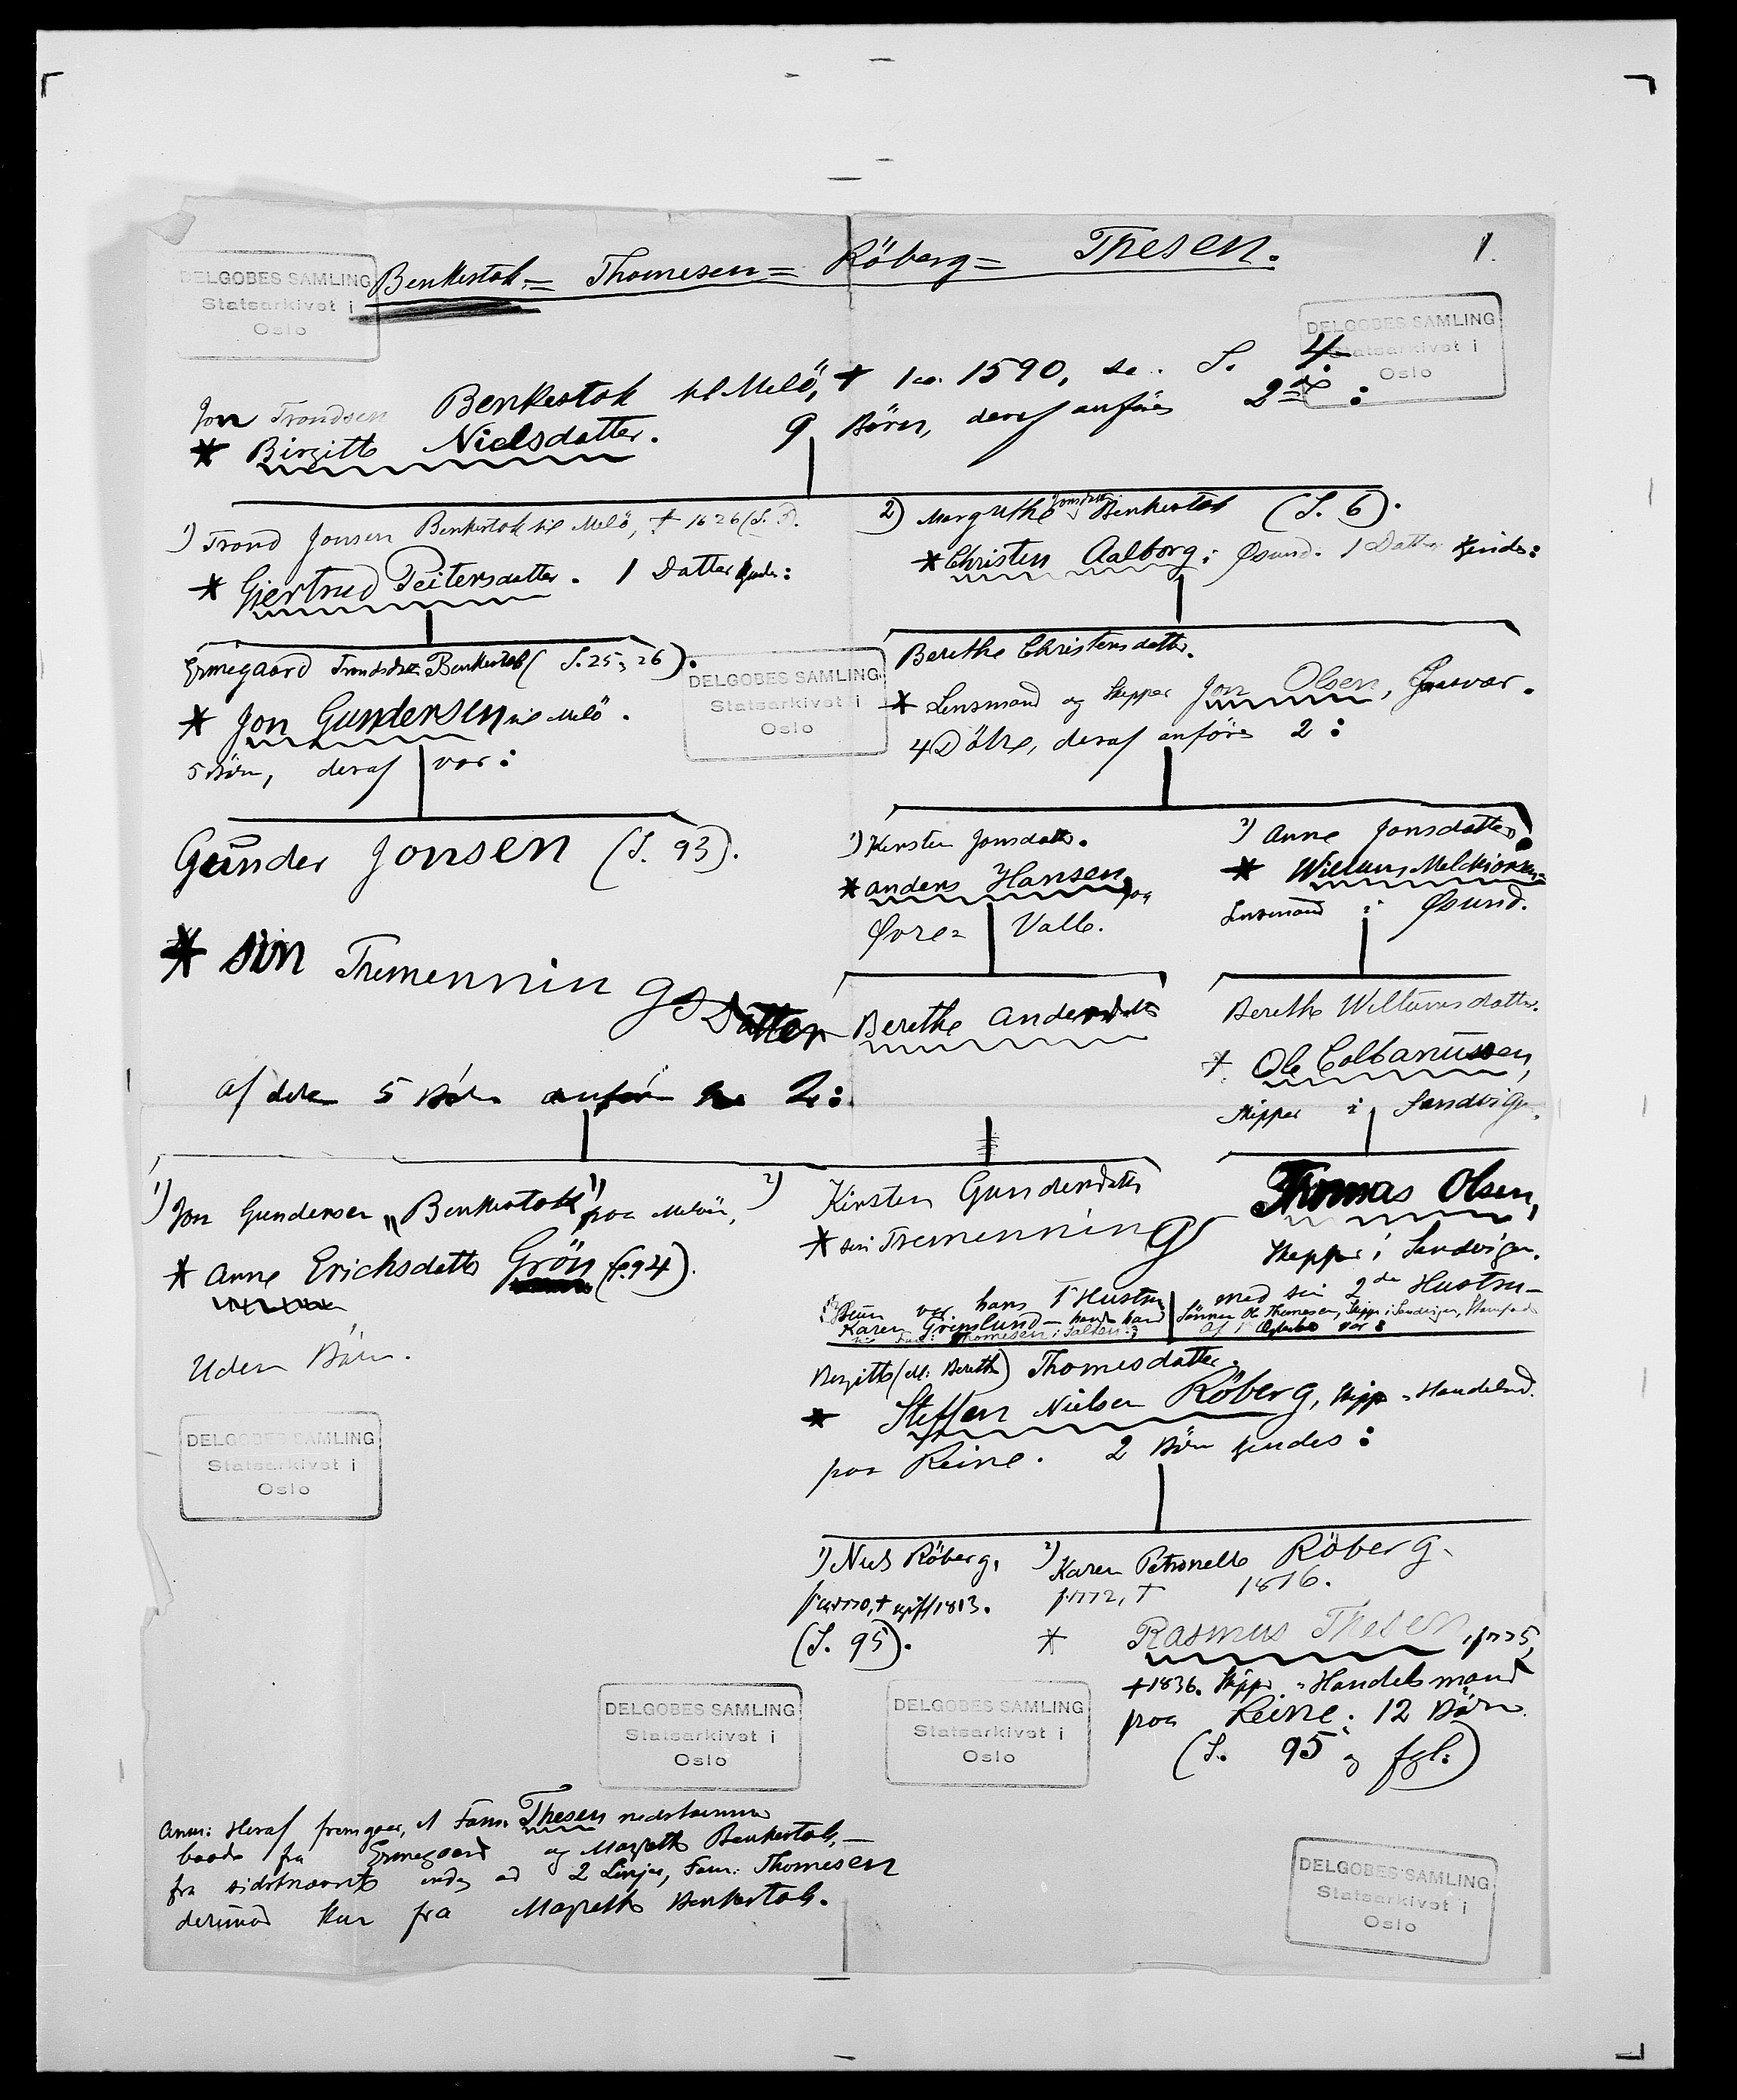 Benkestok = Thomesen = Röberg = Thesen.
1.
DELGOBES SAMLING
Statsarkivet i
Oslo
DELGOBES SAMLING
Statsarkivet i
Oslo
Jon Trondsen Benkestok til Melö, † ca. 1590, se. S. 4.
* Birgitte Nielsdatter. 9 Börn, deraf anföres 2de :
1) Trond Jonsen Benkestok til Melö, † 1626 (S. ).
* Gjertrud Peitersdatter. 1 Datter kjendes:
2) Margrethe Jonsdatter Benkestok (S. 6).
* Christen Aalborg i Øsund. 1 Datter kjendes:
Ermegaard Trondsdtr Benkestok (S. 25, 26).
* Jon Gundersen til Melö.
5 Börn, deraf var :
DELGOBES SAMLING
Statsarkivet i
Oslo
Berethe Christensdatter.
* Lensmand og Skipper Jon Olsen, .
4 Dötre, deraf anföres 2 :
Gunder Jonsen (S. 93).
* sin Tremenningsdatter
1) Kirsten Jonsdatter.
* Anders Hansen paa
Øvre = Valle.
2) Anne Jonsdatter.
* Willum Melchiorsen
Lensmand i Øsund.
Berethe Andersdatter
Berethe Willumsdatter.
* Ole Colbanussen,
Skipper i Sandvigen.
af dere 5 Börn anföres 2 :
1) Jon Gundersen „Benkestok" paa Melöe,
* Anne Erichsdatter Grön (S. 94).
Uden Börn.
2) Kirsten Gundersdatter
* sin Tremenning
Thomas Olsen,
Skipper i Sandvigen.
Hun var hans 1ste Hustru
Karen Grönlund –
Fam: Thomesen i Salten:
med sin 2de Hustru –
Sönnen Ole Thomesen, Skipper i Sandvigen,
Af 1 Ægteskab var :
Birgitte (el. Berethe) Thomesdatter.
* Steffen Nielsen Röberg, Skipper = Handelsmd.
paa Reine. 2 Börn kjendes :
DELGOBES SAMLING
Statsarkivet i
Oslo
1) Niels Röberg,
f. ca 1770, † 1813.
(S. 95).
2) Karen Petronelle Röberg.
f. 1772, † 1816.
* Rasmus Thesen, f. 1775,
† 1836. Skipper = Handelsmand
paa Reine. 12 Börn.
(S. 95 og fgl.)
DELGOBES SAMLING
Statsarkivet i
Oslo
DELGOBES SAMLING
Statsarkivet i
Oslo
Anm: Heraf fremgaar, at Fam. Thesen nedstammer
baade fra Ermegaard og Margrethe Benkestok, –
fra sidstnævnte endog ad 2 Linjer, Fam: Thomesen
derimod kun fra Margrethe Benkestok.
DELGOBES SAMLING
Statsarkivet i
Oslo